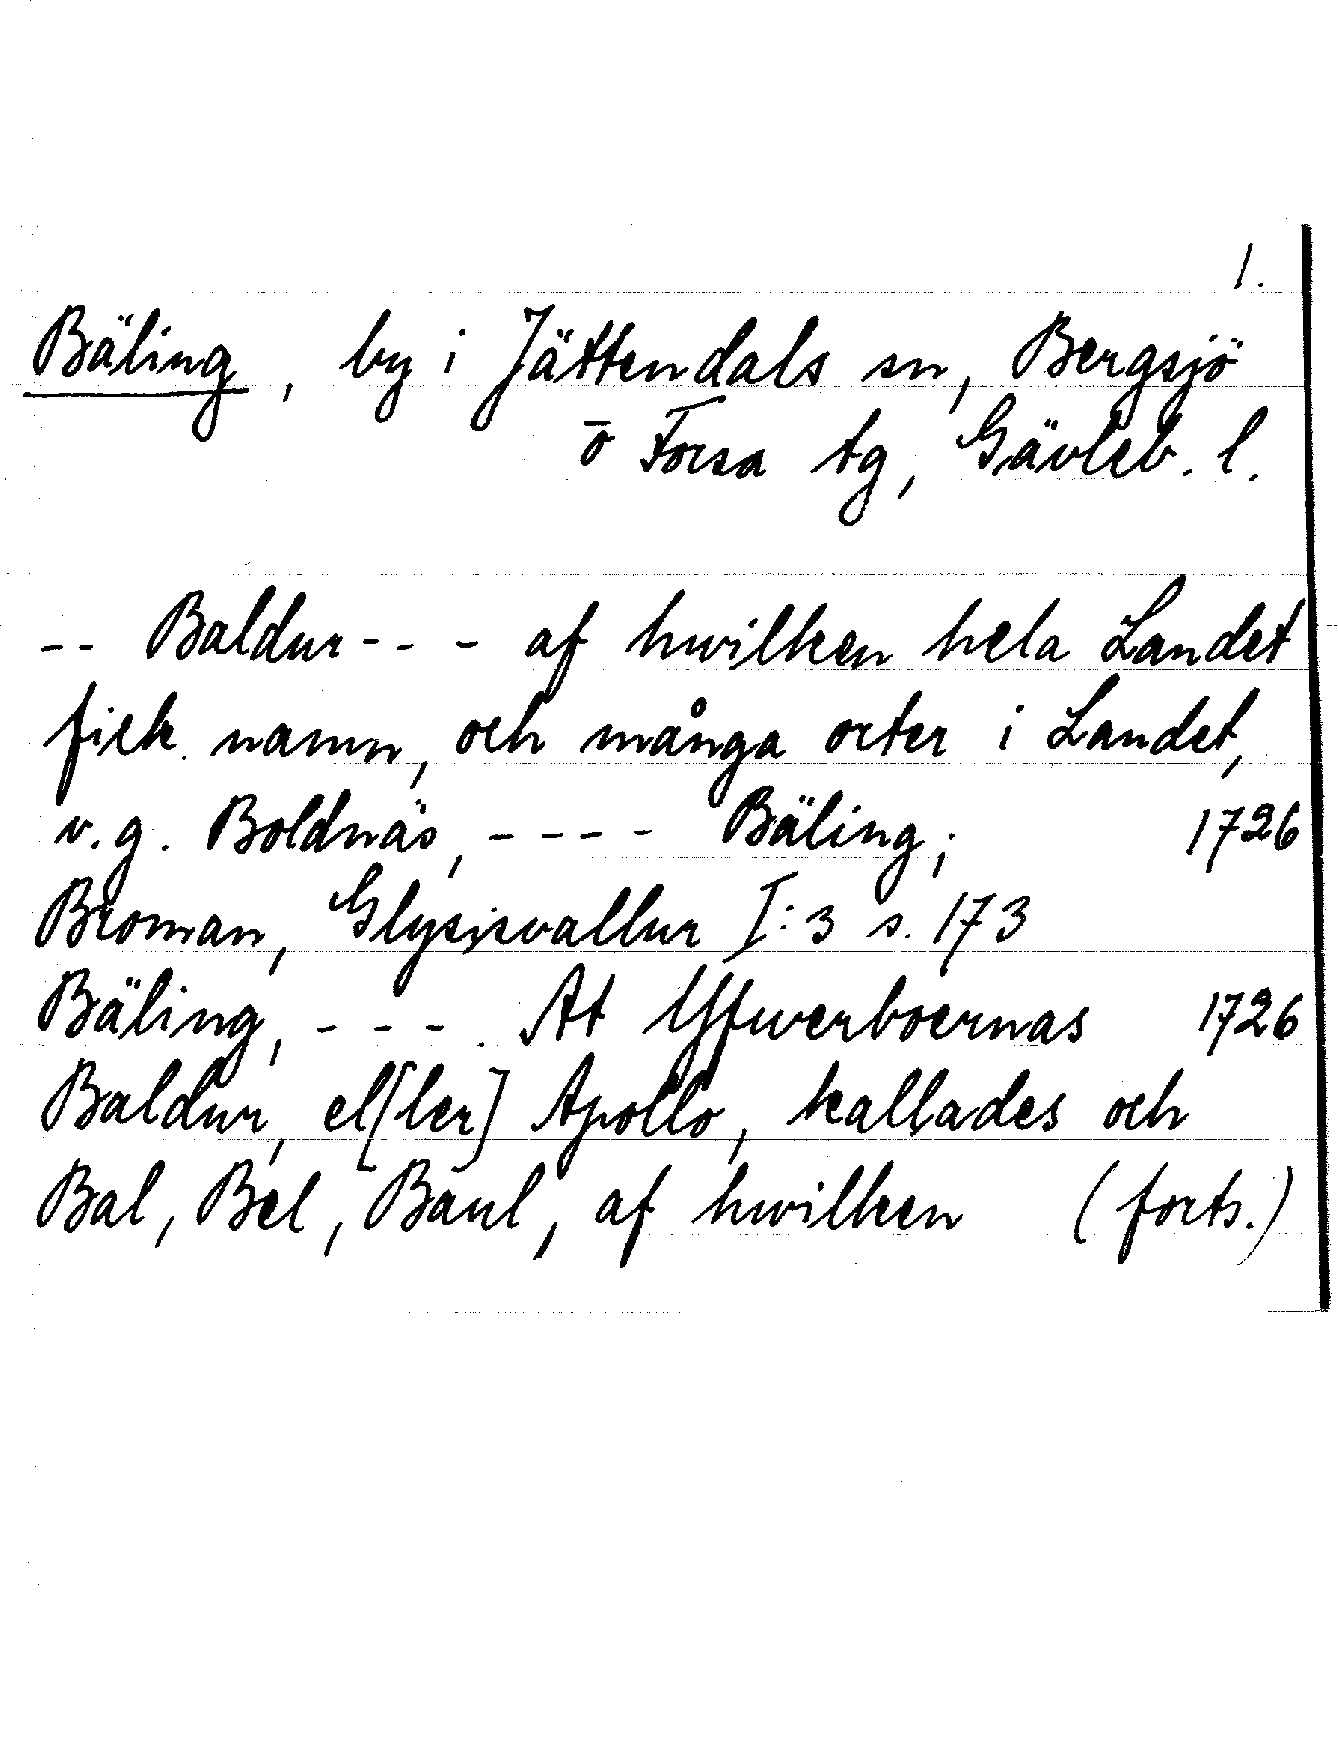 1.
Bäling, by i Jättendals sn, Bergsjö
o Forsa tg, Gävleb. l.
-- Baldur--- af hwilken hela Landet
fick namn, och många orter i Landet,
v.g. Boldnäs, ---- Bäling; 1726
Broman, Glysisvallur I:3 s. 173
Bäling, --- . At Yfwerboernas 1726
Baldur, el[ler] Apollo, kallades och
Bal, Bel, Baul, af hwilken (forts.)